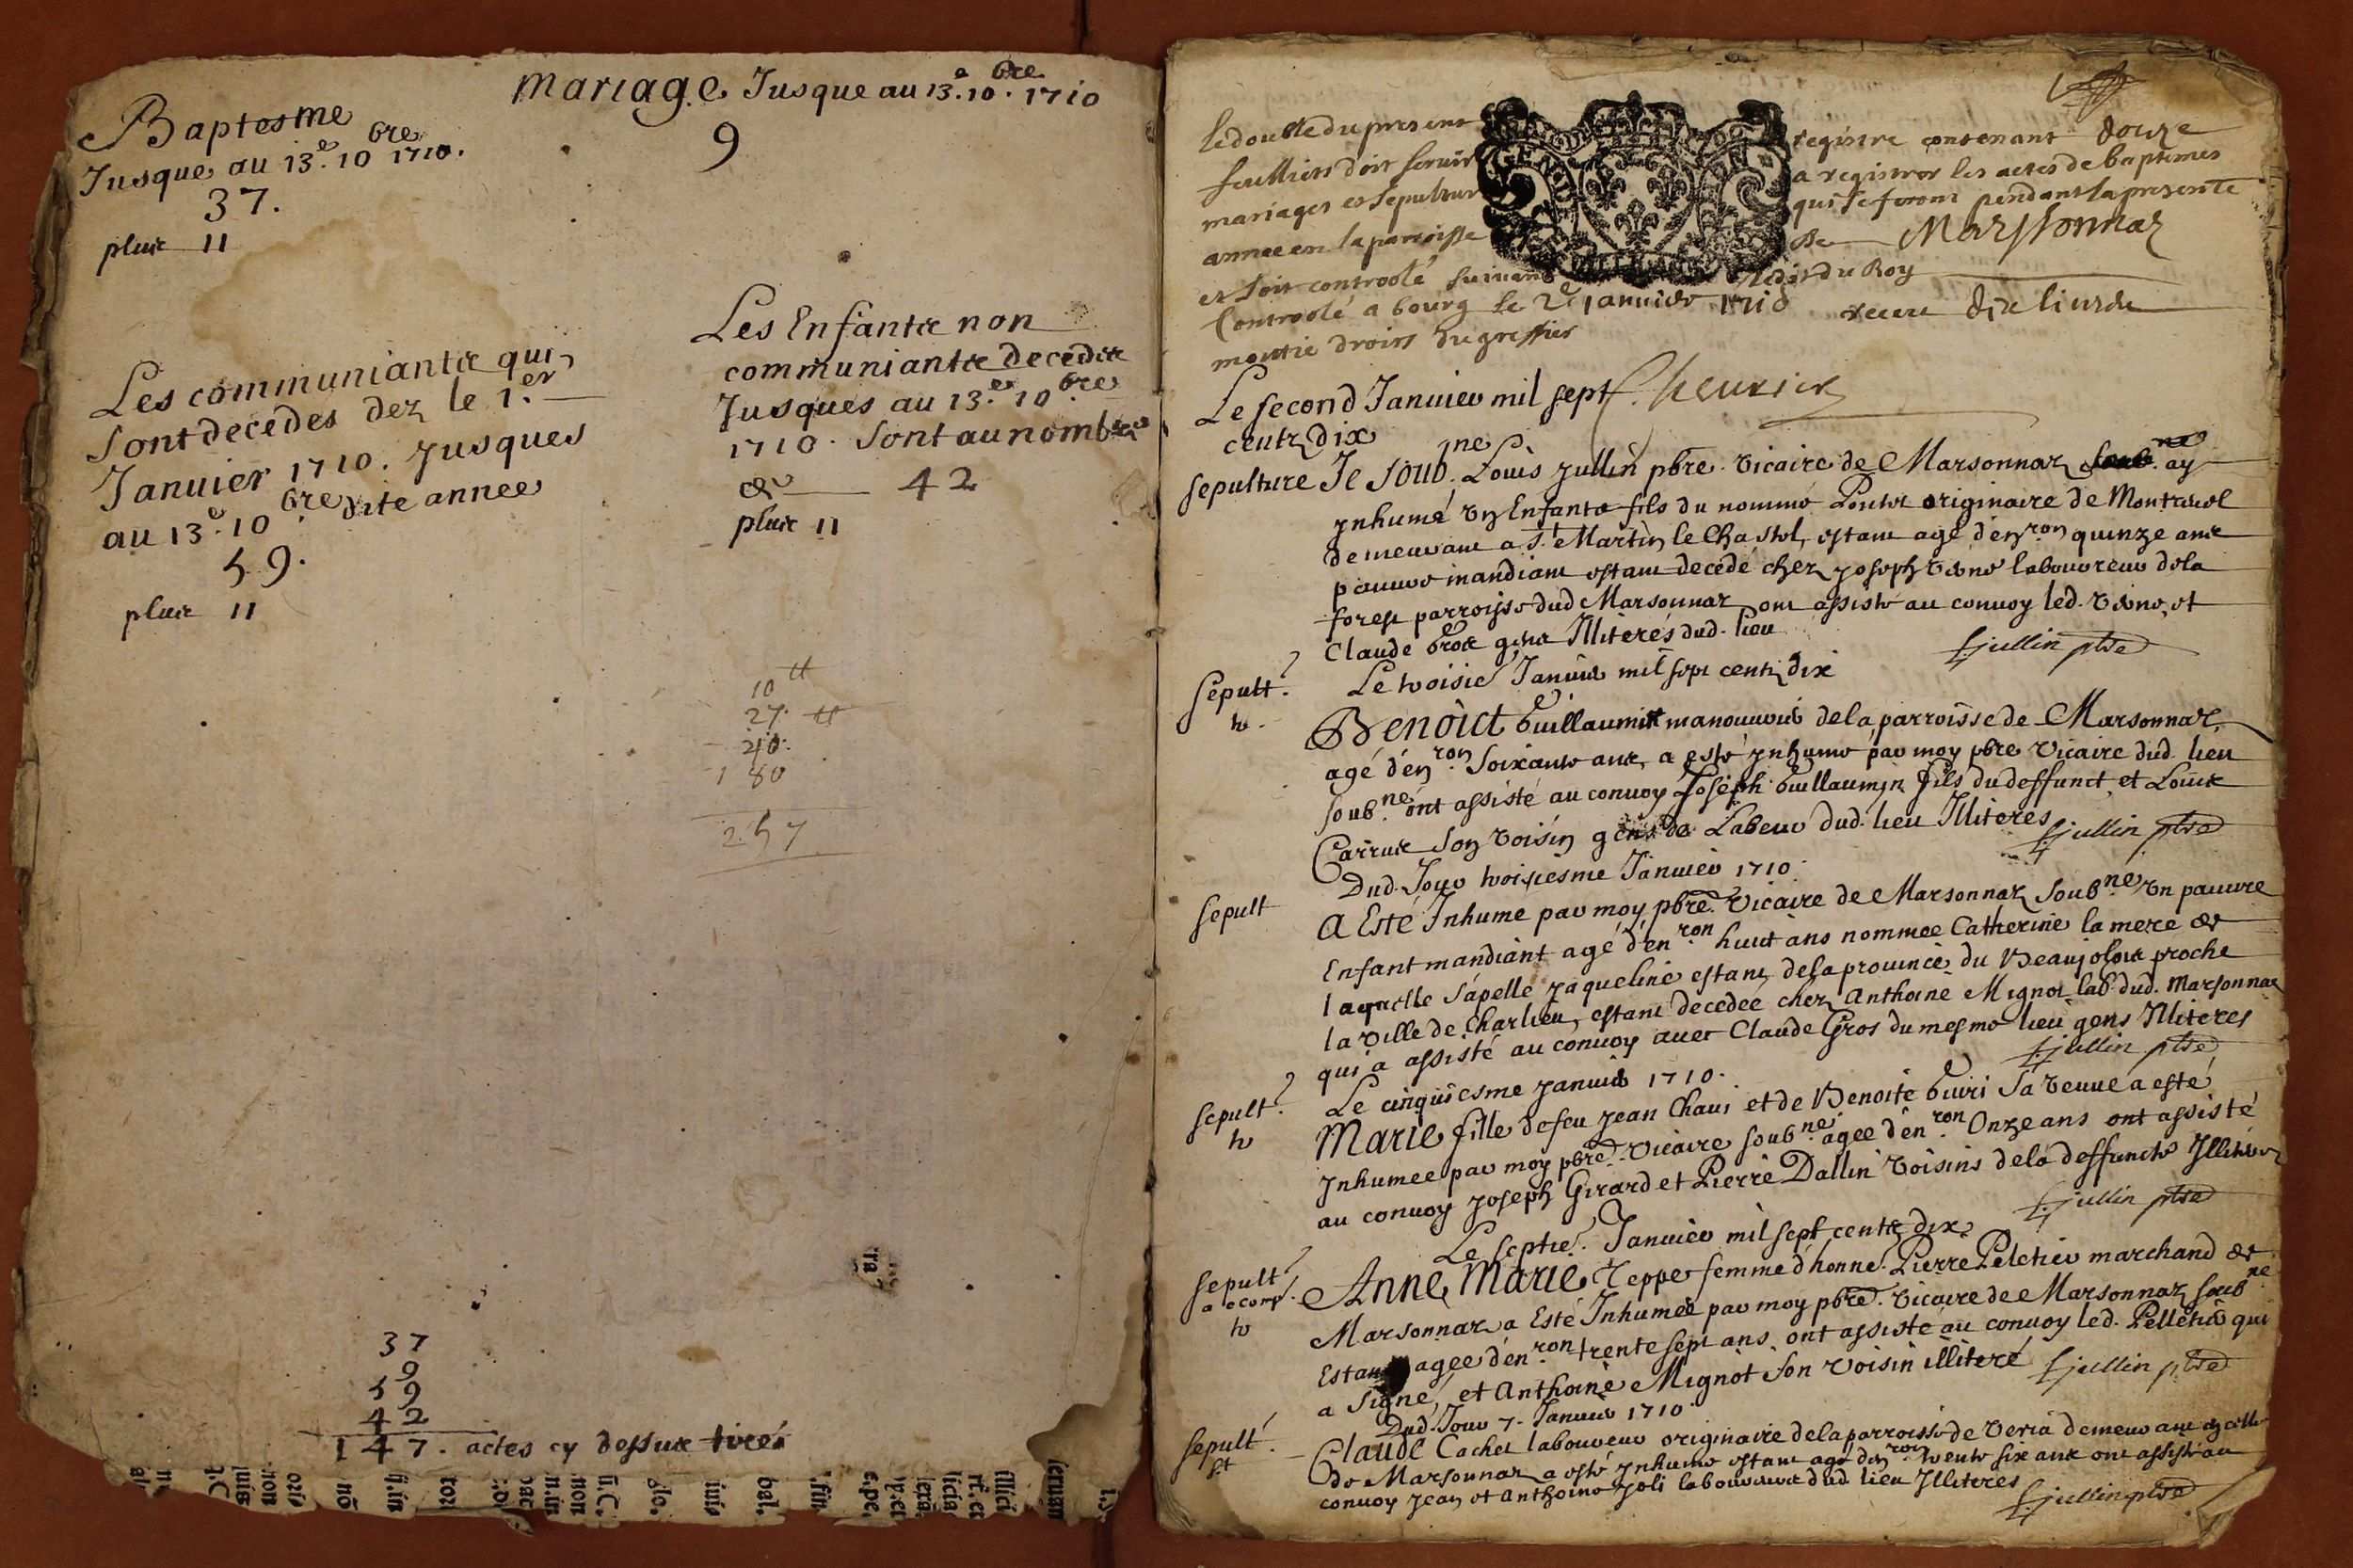 Baptesme
Jusque au 13.e 10 bre 1710.
37.
plus 11
mariage Jusque au 13.e 10.bre 1710
9
Les communiants qui
sont decedes dez le 1.er
Januier 1710. Jusques
au 13.e 10 bre dite annee
59.
plus 11
Les Enfants non
communiants decedes
Jusques au 13.e 10.bre
1710. sont au nombre
de 42
plus 11
10 tt
27. tt
40.
180
257
37
9
59
42
147. actes cy dessus tirés
le double du present registre contenant douze
feulliets doit servir a registrer les actes de baptemes
mariages et sepultures qui se feront pendant la presente
annee en la parroisse de Marssonnaz
et soit controolé suivant l'edit du Roy
Controolé a bourg le 2e januier 1710 receu dix liures
moitie droits du greffier
Le second Januier mil sept
cents dix
sepulture Je soub.né Louis Jullin pbre. vicaire de Marsonnaz ay
ynhumé un Enfant fils du nommé originaire de Montreuel
demeurant a St. Martin le Chastel, estant agé d'enron quinze ans
pauure mandiant estant decedé chez Joseph laboureur de la
forest parroisse dud Marsonnaz ont assisté au conuoy led. et
Claude gens Illiterés dud. lieu
L. jullin pbre
Sepult.
Le troisie. Januier mil sept cents dix
Benoict Guillaumin manouurier de la parroisse de Marsonnaz,
agé d'enron soixante ans, a esté ynhumé par moy pbre vicaire dud. lieu
soub.né ont assisté au conuoy Joseph Guillaumin fils du deffunct, et Louis
Carrus son voisin gens de Labeur dud. lieu Illiteres
L. jullin pbre
Dud. Jour troisiesme Januier 1710.
sepult
A Esté Inhume par moy pbre. vicaire de Marsonnaz soub.né un pauure
Enfant mandiant agé d'enron huict ans nommee Catherine la mere de
laquelle s'apelle Jaqueline estant de la prouince du Beaujolois proche
la ville de Charlieu, estant decedeé chez Anthoine Mignot lab. dud. Marsonnaz
qui a assisté au conuoy auec Claude Gros du mesme lieu gens Illiteres
L. jullin pbre
sepult.
Le cinquiesme Januier 1710.
Marie fille de feu Jean Chaui et de Benoite Guiri sa veuue a esté
ynhumee par moy pbre. vicaire soub.né agee d'enron Onze ans ont assisté
au conuoy Joseph Girard et Pierre Dallin voisins de la deffuncte Illiteres
L. jullin pbre
Le septie. Januier mil sept cents dix
sepult.
a ecomp.
Anne Marie Teppe femme d'honne. Pierre Peletier marchand de
Marsonnaz a Esté Inhumeé par moy pbre. vicaire de Marsonnaz soub.né
Estant agee d'enron trente sept ans, ont assisté au conuoy led. Pelletier qui
a signé, et Anthoine Mignot son voisin illiteré
L. jullin pbre
Dud. Jour 7. Januier 1710.
sepult.
Claude Cachet laboureur originaire de la parroisse de Veria demeurant en celle
de Marsonnaz a esté ynhumé estant agé d'enron trente six ans ont assisté au
conuoy Jean et Anthoine Joli laboureurs dud lieu Illiteres
L. jullin pbre